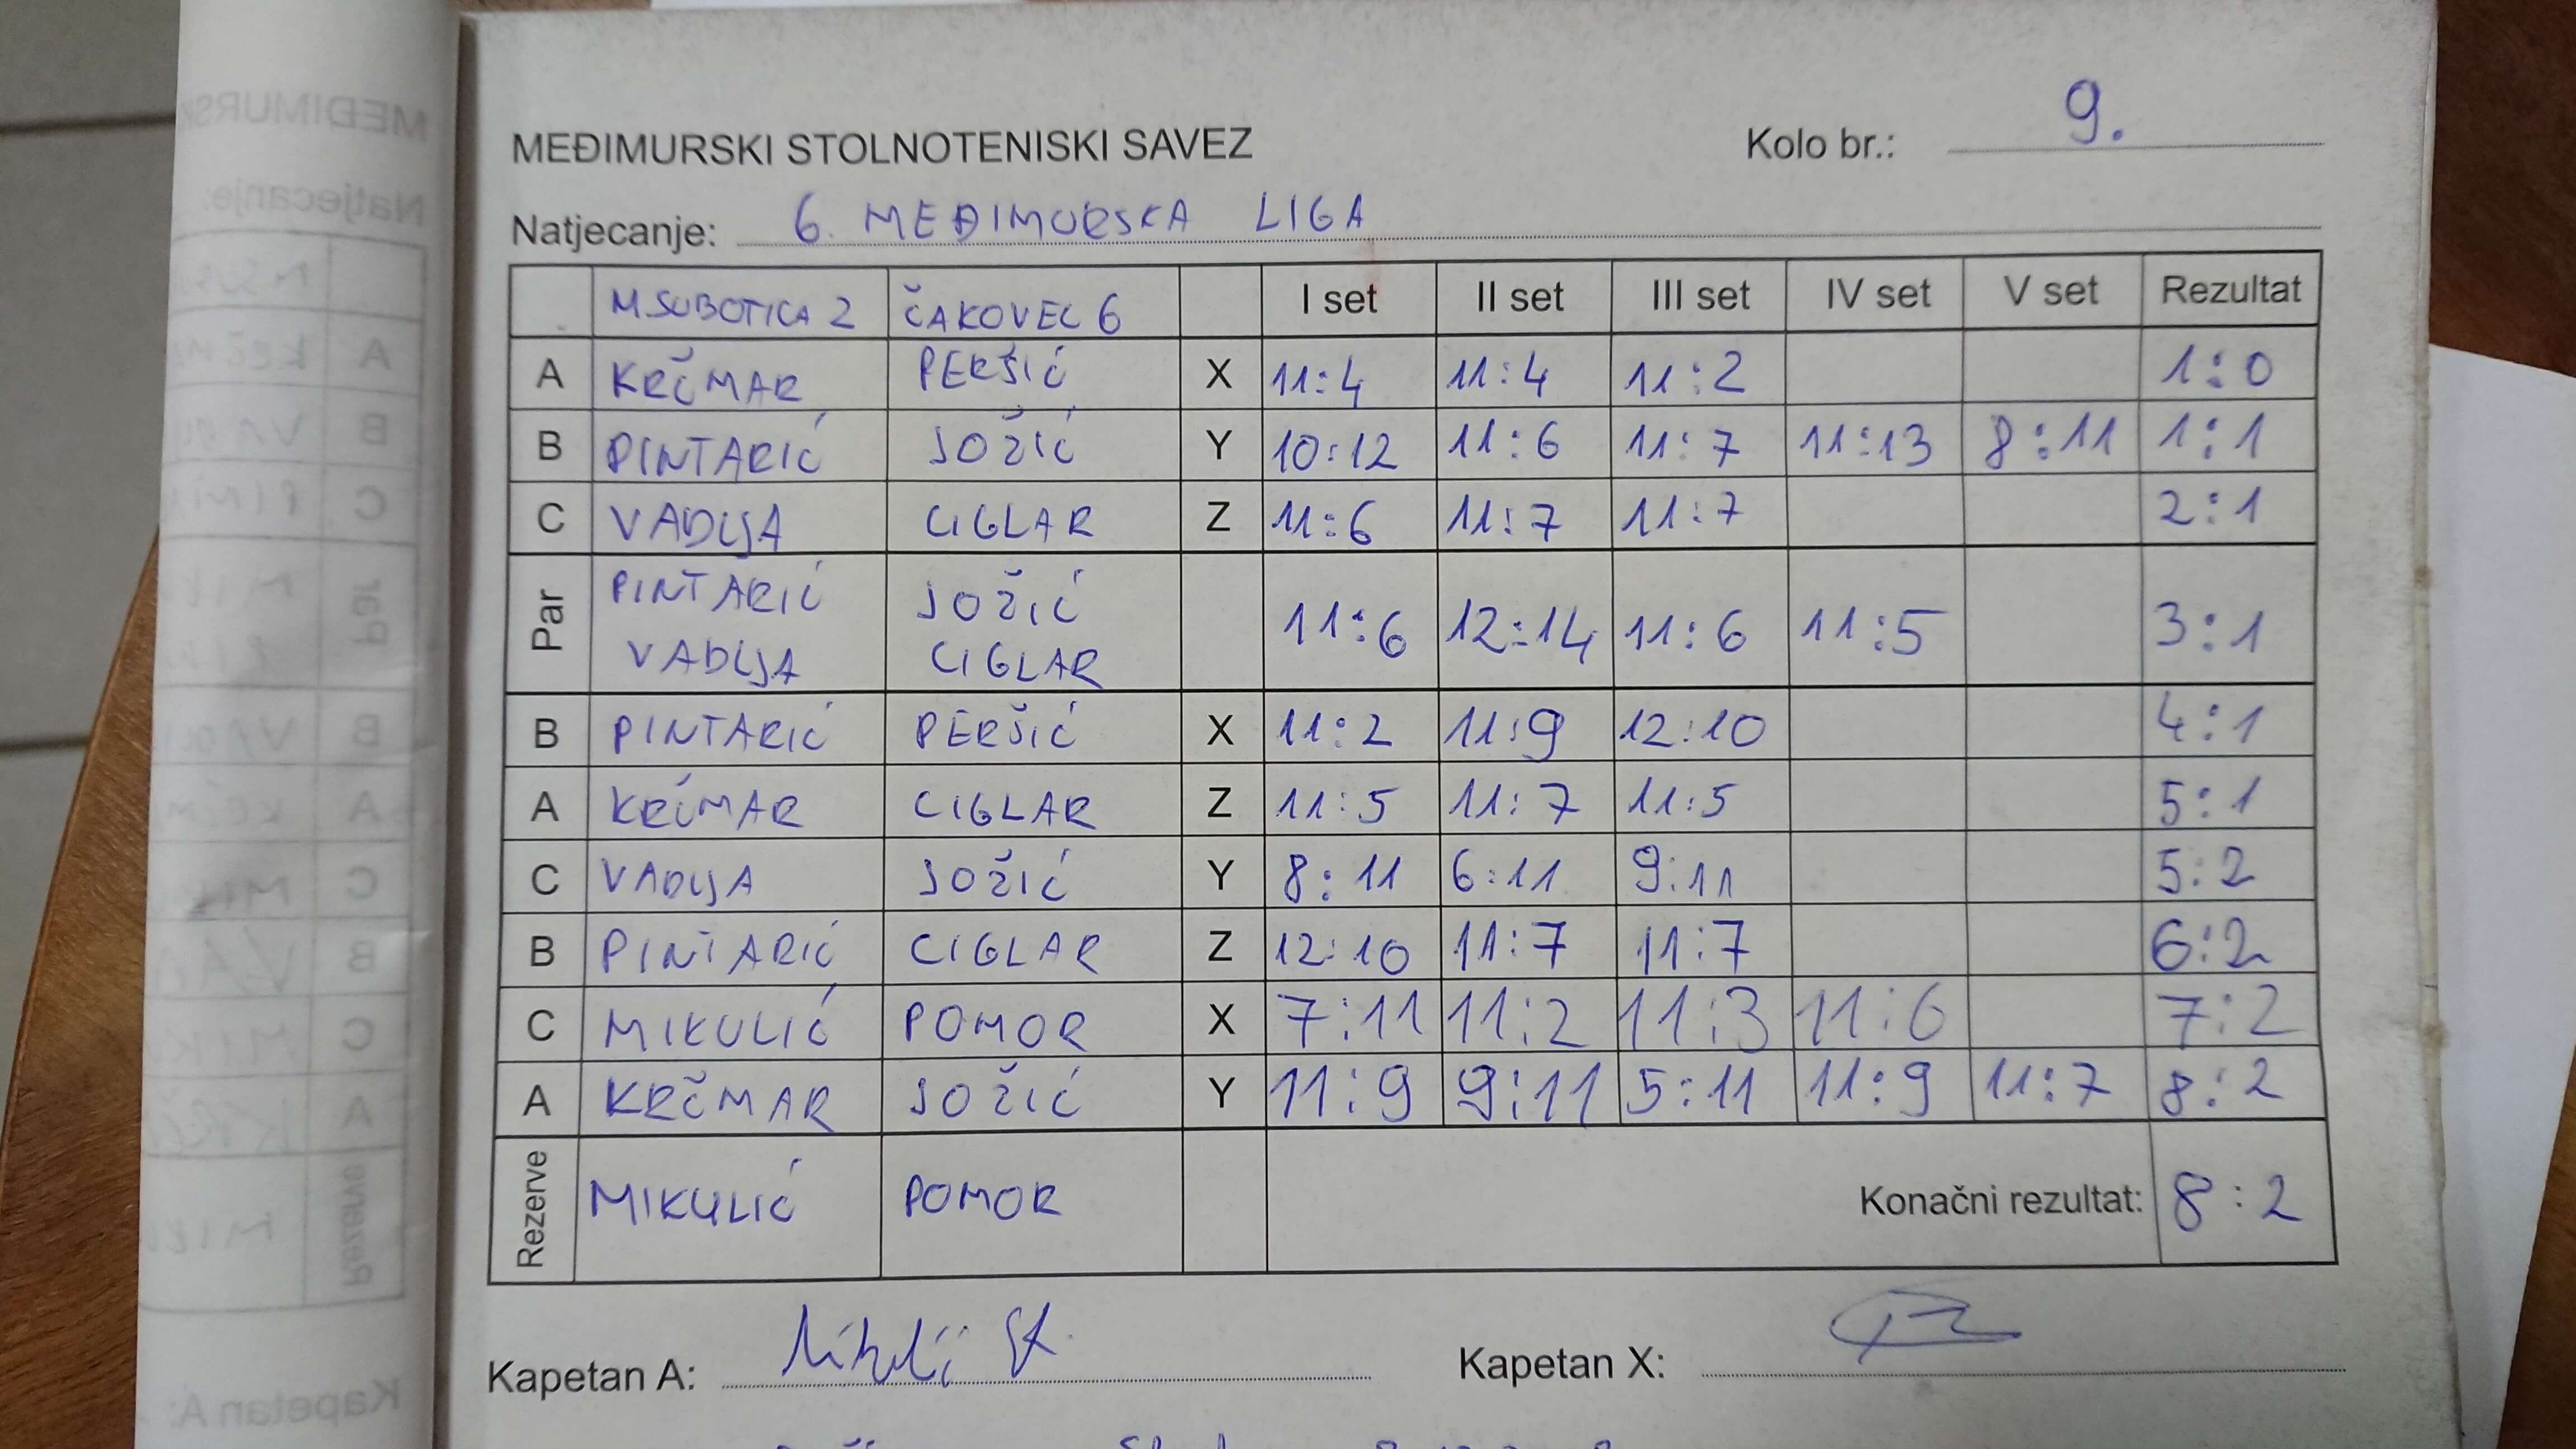 MEĐIMURSKI STOLNOTENISKI SAVEZ Kolo br.: 9.
Natjecanje: 6. MEĐIMURSKA LIGA
M.SUBOTICA 2 ČAKOVEC 6 I set II set III set IV set V set Rezultat
A KRČMAR PERŠIĆ X 11:4 11:4 11:2 1:0
B PINTARIĆ JOŽIĆ Y 10:12 11:6 11:7 11:13 8:11 1:1
C VADLJA CIGLAR Z 11:6 11:7 11:7 2:1
Par PINTARIĆ JOŽIĆ 11:6 12:14 11:6 11:5 3:1
VADLJA CIGLAR
B PINTARIĆ PERŠIĆ X 11:2 11:9 12:10 4:1
A KRČMAR CIGLAR Z 11:5 11:7 11:5 5:1
C VADLJA JOŽIĆ Y 8:11 6:11 9:11 5:2
B PINTARIĆ CIGLAR Z 12:10 11:7 11:7 6:2
C MIKULIĆ POMOR X 7:11 11:2 11:3 11:6 7:2
A KRČMAR JOŽIĆ Y 11:9 9:11 5:11 11:9 11:7 8:2
Rezerve MIKULIĆ POMOR Konačni rezultat: 8:2
Kapetan A: Kapetan X: